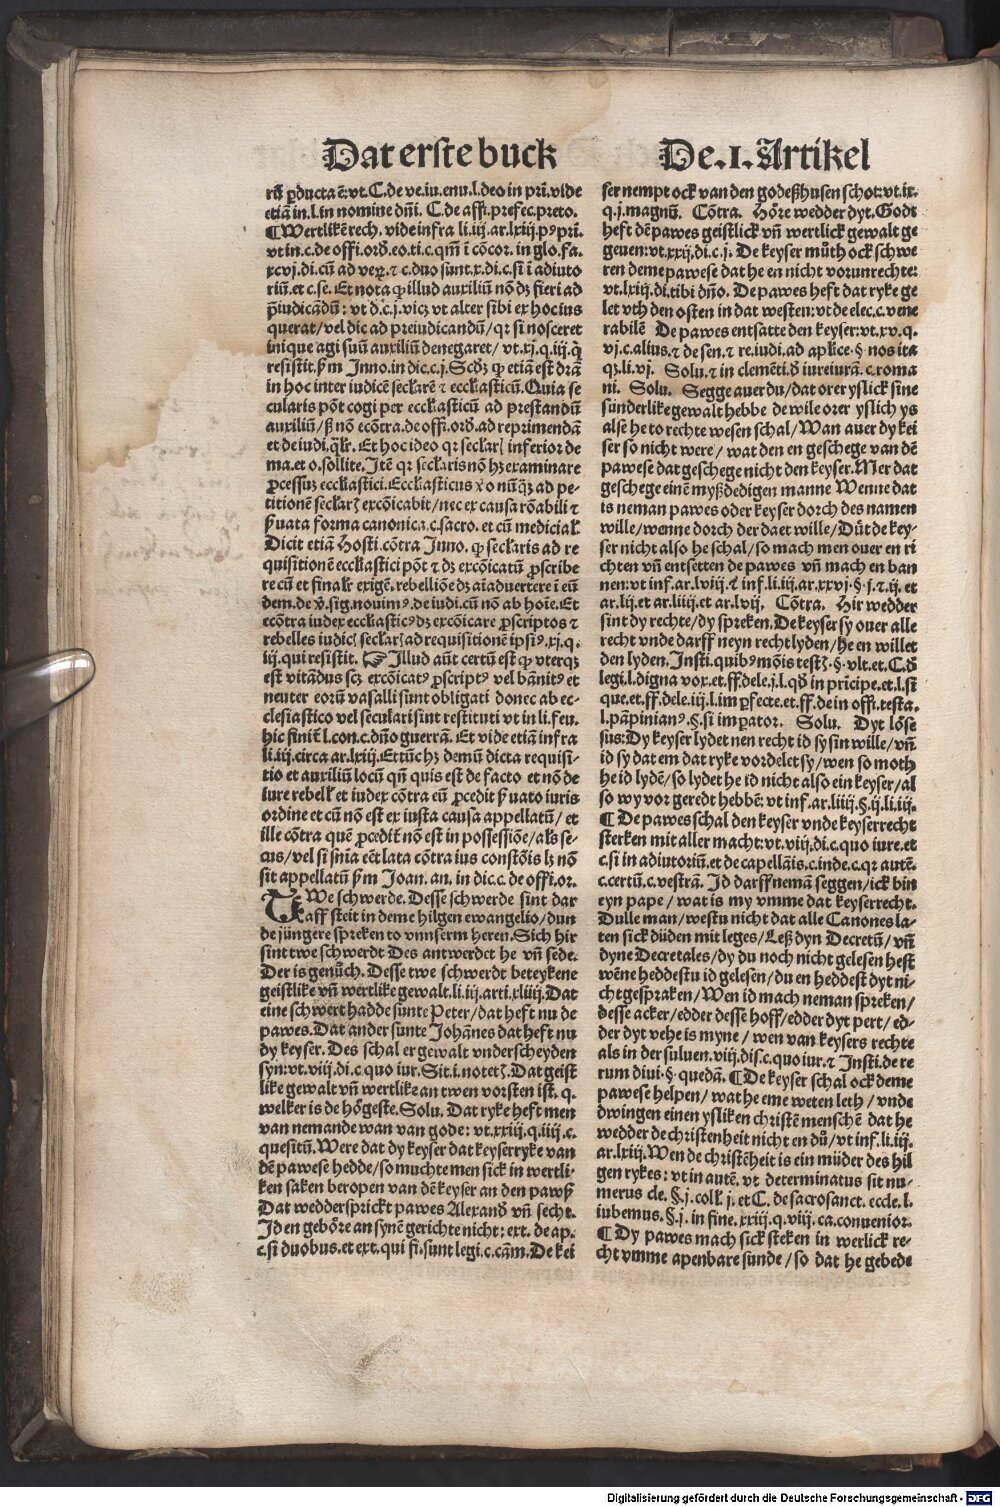 Dat erste buck
De .I. Artikel
rū ꝓducta ē: vt. C. de ve. iu. enu. l. deo in pri. vide
etiā in. l. in nomine dñi. C. de affi. prefec. preto.
¶ Wertlikē rech. vide infra li. iij. ar. lxiij. pꝰ pri.
vt in. c. de offi. ord̄. eo. ti. c. qm̄ i cōcor. in glo. fa.
xcvj. di. cū ad veꝝ. ⁊ c. duo sunt. x. di. c. si i adiuto
riū. et c. se. Et nota ꝙ illud auxiliū nō dꝫ fieri ad
p̄iudicādū: vt d. c. j. vicꝫ vt alter sibi ex hoc ius
querat / vel dic ad preiudicandū / qꝛ si nosceret
inique agi suū auxiliū denegaret / vt. xj. q. iij. q̄
resistit. ẜm Inno. in dic. c. j. Scdꝫ ꝙ etiā est drā
in hoc inter iudicē seclarē ⁊ eccłiasticū. Quia se
cularis pōt cogi per eccłiasticū ad prestandū
auxiliū / ß nō ecōtra. de offi. ord̄. ad reprimendā
et de iudi. q̄lr. Et hoc ideo qꝛ seclarꝭ inferior de
ma. et o. sollite. Itē qꝛ seclaris nō hꝫ examinare
ꝓcessuꝫ eccłiastici. Eccłiasticus ꝟo nūqꝫ ad pe-
titionē seclarꝭ excōicabit / nec ex causa rōabili ⁊
ẜuata forma canonica. c. sacro. et cū medicial.
Dicit etiā Hosti. cōtra Inno. ꝙ seclaris ad re
quisitionē eccłiastici pōt ⁊ dꝫ excōicatū ꝓscribe
re cū et finalr exigē. rebelliōe dꝫ aīaduertere i eū
dem. de ꝟ. sig. nouimꝰ. de iudi. cū nō ab hoīe. Et
ecōtra iudex eccłiasticꝰ dꝫ excōicare ꝓscriptos ⁊
rebelles iudicꝭ seclarꝭ ad requisitionē ipsiꝰ. xj. q.
iij. qui resistit. ☞ Illud aūt certū est ꝙ vterqꝫ
est vitādus scꝫ excōicatꝰ ꝓscriptꝰ vel bānitꝰ et
neuter eorū vasalli sunt obligati donec ab ec-
clesiastico vel seculari sint restituti vt in li. feu.
hic finit̄ l. con. c. dño guerrā. Et vide etiā infra
li. iij. circa ar. lxiij. Et tūc hꝫ demū dicta requisi-
tio et auxiliū locū qn̄ quis est de facto et nō de
iure rebell̄ et iudex cōtra eū ꝓcedit ẜuato iuris
ordine et cū nō est ex iusta causa appellatū / et
ille cōtra quē ꝓcedit̄ nō est in possessiōe / als se-
cus / vel si snīa eēt lata cōtra ius constōis lꝫ nō
sit appellatū ẜm Joan. an. in dic. c. de offi. or.
TWe schwerde. Desse schwerde sint dar
aff steit in deme hilgen ewangelio / dun
de jüngere spreken to vnnserm heren. Sich hir
sint twe schwerdt Des antwerdet he vñ sede.
Der is genůch. Desse twe schwerdt beteykene
geistlike vñ wertlike gewalt. li. iij. arti. xliiij. Dat
eine schwert hadde sunte Peter / dat heft nu de
pawes. Dat ander sunte Johānes dat heft nu
dy keyser. Des schal er gewalt vnderscheyden
syn: vt. viij. di. c. quo iur. Sit. i. notetꝭ. Dat geist
like gewalt vñ wertlike an twen vorsten ist. q.
welker is de högeste. Solu. Dat ryke heft men
van nemande wan van gode: vt. xxiij. q. iiij. c.
quesitū. Were dat dy keyser dat keyserryke van
dē pawese hedde / so muchte men sick in wertli-
ken saken beropen van dē keyser an den pawß
Dat weddersprickt pawes Alexand̄ vñ secht.
Jd en gehöre an synē gerichte nicht: ext. de ap.
c. si duobus. et ext. qui fi. sunt legi. c. cām. De kei
ser nempt ock van den godeßhusen schot: vt. ix.
q. j. magnū. Cōtra. Höre wedder dyt. Godt
heft dē pawes geistlick vñ wertlick gewalt ge
geuen: vt. xxij. di. c. j. De keyser můth ock schwe
ren deme pawese dat he en nicht vorunrechte:
vt. lxiij. di. tibi dño. De pawes heft dat ryke ge
let vth den osten in dat westen: vt de elec. c. vene
rabilē De pawes entsatte den keyser: vt. xv. q.
vj. c. alius. ⁊ de sen. ⁊ re. iudi. ad aplice. § nos ita
qꝫ. li. vj. Solu. ⁊ in clemēti. d̄ iureiurā. c. roma
ni. Solu. Segge auer du / dat orer yslick sine
sünderlike gewalt hebbe de wile orer yslich ys
alse he to rechte wesen schal / Wan auer dy kei
ser so nicht were / wat den en geschege van dē
pawese dat geschege nicht den keyser. Mer dat
geschege einē myßdedigen manne Wenne dat
is neman pawes oder keyser dorch des namen
wille / wenne dorch der daet wille / Düt de key-
ser nicht also he schal / so mach men ouer en ri
chten vñ entsetten de pawes vñ mach en ban
nen: vt inf. ar. lviij. ⁊ inf. li. iij. ar. xxvj. §. j. ⁊ ij. et
ar. lij. et ar. liiij. et ar. lvij. Cōtra. Hir wedder
sint dy rechte / dy spreken. De keyser sy ouer alle
recht vnde darff neyn recht lyden / he en willet
den lyden. Insti. quibꝰ mōis testꝭ. § vlt. et. C. d̄
legi. l. digna vox. et. ff. dele. j. l. qd̄ in pricipe. et. l. si
que. et. ff. dele. iij. l. imperfecte. et. ff. de in offi. testa.
l. pāpinianꝰ. §. si imperator. Solu. Dyt löse
sus: Dy keyser lydet nen recht id sy sin wille / vñ
id sy dat em dat ryke vordelet sy / wen so moth
he id lydē / so lydet he id nicht also ein keyser / al
so wy vor geredt hebbē: vt inf. ar. liiij. §. ij. li. iij.
¶ De pawes schal den keyser vnde keyserrecht
sterken mit aller macht: vt. viij. di. c. quo iure. et
c. si in adiutoriū. et de capellāis. c. inde. c. qꝛ autē.
c. certū. c. vestrā. Jd darff nemā seggen / ick bin
eyn pape / wat is my vmme dat keyserrecht.
Dulle man / westu nicht dat alle Canones la-
ten sick düden mit leges / Leß dyn Decretū / vñ
dyne Decretales / dy du noch nicht gelesen hest
wēne heddestu id gelesen / du en heddest dyt ni-
cht gespraken / Wen id mach neman spreken /
desse acker / edder desse hoff / edder dyt pert / ed-
der dyt vehe is myne / wen van keysers rechte
als in der suluen. viij. dis. c. quo iur. ⁊ Insti. de re
rum diui. § quedā. ¶ De keyser schal ock deme
pawese helpen / wat he eme weten leth / vnde
dwingen einen ysliken christē menschē dat he
wedder de christenheit nicht en dů / vt inf. li. iij.
ar. lxiij. Wen de christēheit is ein müder des hil
gen rykes: vt in autē. vt determinatus sit nu-
merus cle. §. j. coll. j. et C. de sacrosanct. eccle. l.
iubemus. §. j. in fine. xxiij. q. viij. ca. conuenior.
¶ Dy pawes mach sick steken in werlick re-
cht vmme apenbare sunde / so dat he gebede
Digitalisierung gefördert durch die Deutsche Forschungsgemeinschaft - DFG